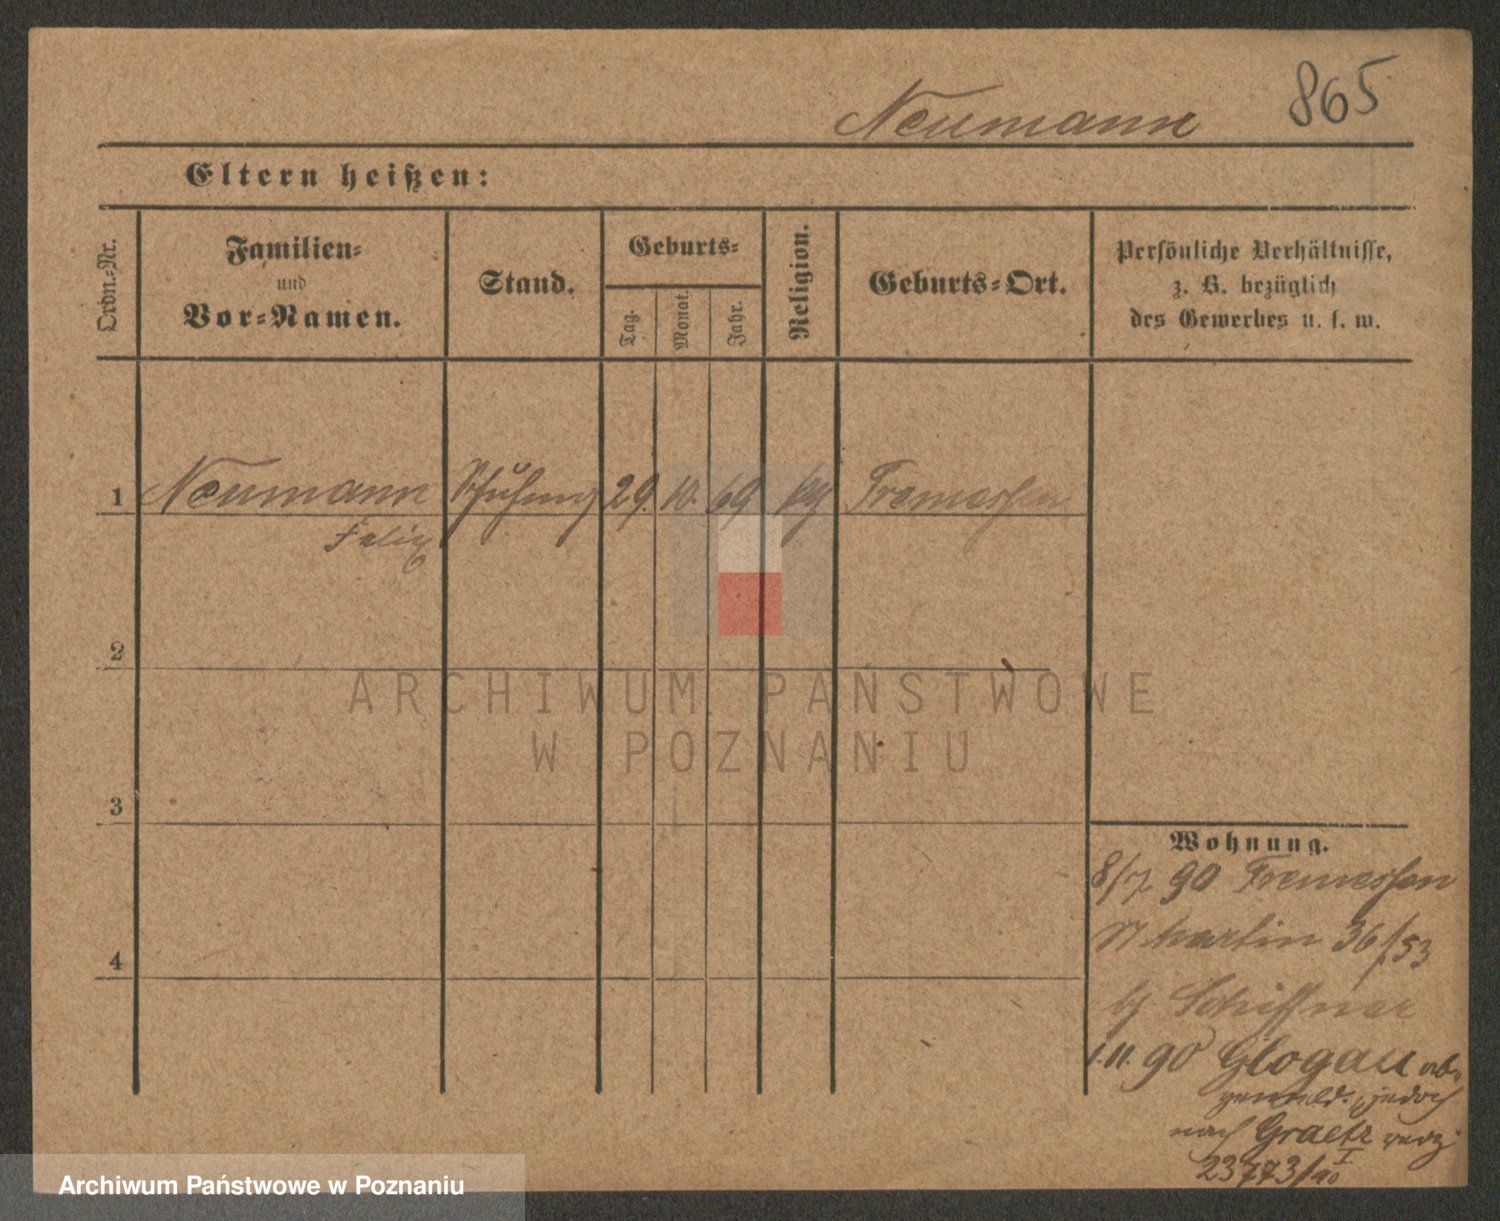 Neumann 865
Eltern heißen:
Ordn.-Nr.
Familien-
und
Vor-Namen.
Stand.
Geburts-
Tag.
Monat.
Jahr.
Religion.
Geburts-Ort.
Persönliche Verhältnisse,
z. B. bezüglich
des Gewerbes u. s. w.
1 Neumann 29. 10. 69 Tremessen
Felix
2
3
4
Wohnung.
8/7 90 Tremessen
St Martin 36/53
bg Schiffner
1.11. 90 Glogau ab-
gemeld. jedoch
nach Graetz verz
23773/90 I
ARCHIWUM PAŃSTWOWE
W POZNANIU
Archiwum Państwowe w Poznaniu